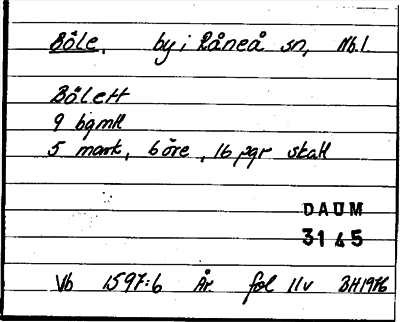 Böle. by i Råneå sn, Nb.l.
Bölett
9 bgmll
5 mark, 6 öre, 16 pgr skatt
DAUM
3145
Vb 1597:6 År fol 11v BH1976